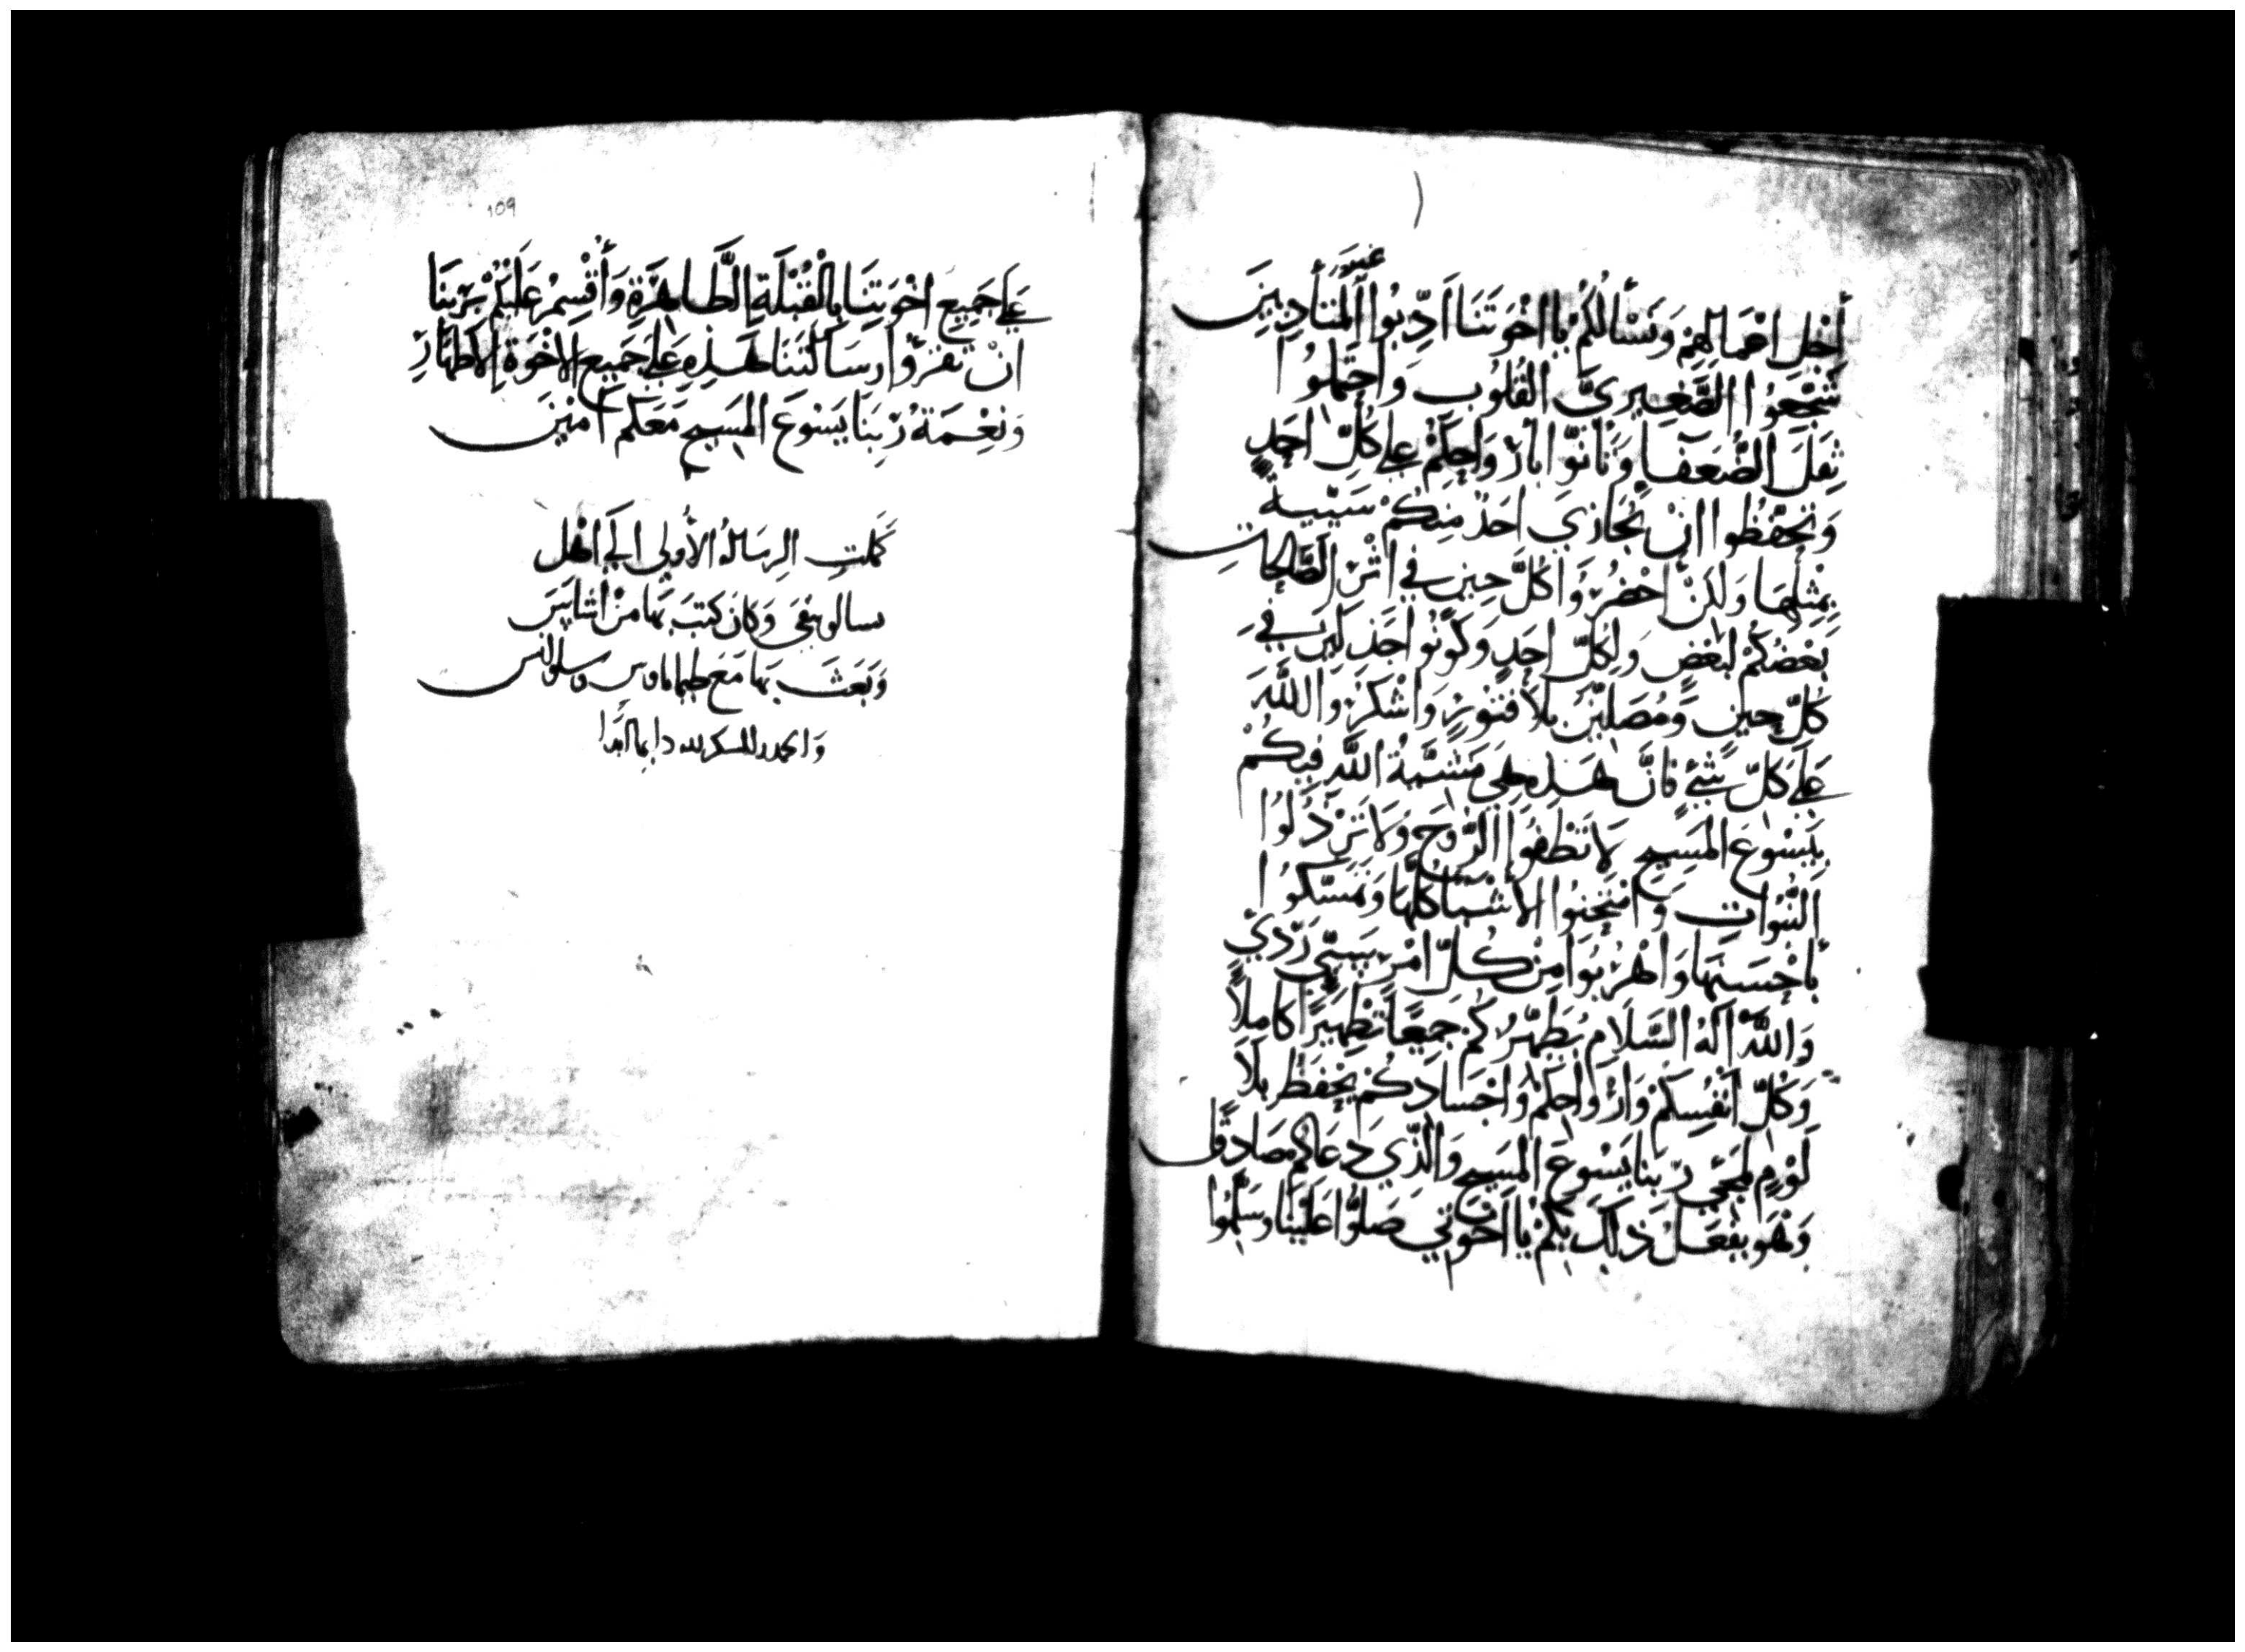 غير
أجْل اعْمالهِمْ وَنَسْأَلُكُمْ يا اخْوَتَنَا ادِّبُوا المتأدِبينَ
شجِّعُوا الصَّغِيريَّ القُلُوب وَاحتَملُوا
ثِقلَ الضُّعَفا وَتَأنوّا بأرْوَاحِكمْ عَلى كُلِّ احَدٍ
وَتحَفْظُوا انْ يُجَازي احَدٌ مِنكُمْ سَيّيةً
بِمثْلِهَا وَلكنْ احْضُرُوا كُلَّ حِينٍ في اثْرِ الصَّالحاتِ
بَعْضُكُمْ لبَعْضٍ وَلِكُلِّ احَدٍ وَكُونُو اجَذلينَ في
كُلّ حِينٍ وَمُصَلينَ بِلا فتُورٍ وَاشْكرُوا اللَّهَ
عَلَى كُلّ شَيْءٍ فانَّ هَذهِ هِيَ مَشيَّةُ اللَّهِ فيكُمْ
بِيَسُوعَ المَسِيحِ لا تطْفوُا الرّوحَ وَلا تَرْذُلوُا
النُّبوَّاتِ وَامتَحِنُوا الأشْيَا كُلَّهَا وَتَمسَّكوُا
بأحْسَنِهَا وَاهْرُبُوا مِنْ كُلّ امْرٍ سَيّيٍ رَدّيٍ
وَاللَّهُ الَهُ السَّلَامِ يُطَهّرُكُمْ جَميعًا تطْهِيرًا كاملًا
وَكُلّ انْفُسِكُمْ وَارْواحِكمْ وَاجْسَادَكُمْ يَحْفَظ بلَا
لوْمٍ لمَجْي رَبّنا يَسُوعَ المَسِيح وَالّذي دَعَاكُم صَادقًا
وَهُوَ يفْعَلُ ذلِكَ بكُمْ يَا اخَوتي صَلوُّا عَلَيْنا وَسَلّمُوا
109
عَلى جَمِيعِ اخْوَتِنَا بالْقُبْلَةِ الطَّاهِرَةِ وَأُقْسِمُ عَلَيْكُمْ بِرَبِّنَا
انْ تقرَؤُا رِسَالَتَنَا هَذِهِ عَلى جَمِيعِ الاخْوَةِ الاطْهَارِ
وَنِعْمَةُ رَبِّنَا يَسُوعَ المَسِيحِ مَعَكُم امنينَ
كمَلتِ الرِسَالةُ الأولى الَى اهْل
سالونيقى وَكانَ كَتبَ بهَا مِنْ اثنايس
وَبَعَثَ بهَا مَعَ طيماثاوس وسلوانس
وَالحمد للشكر لله دايما ابدًا